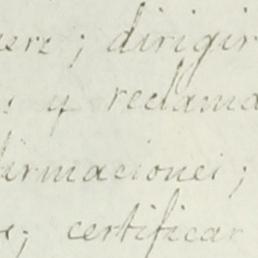 ; dirigir
y reclama
firmaciones;
; certificar